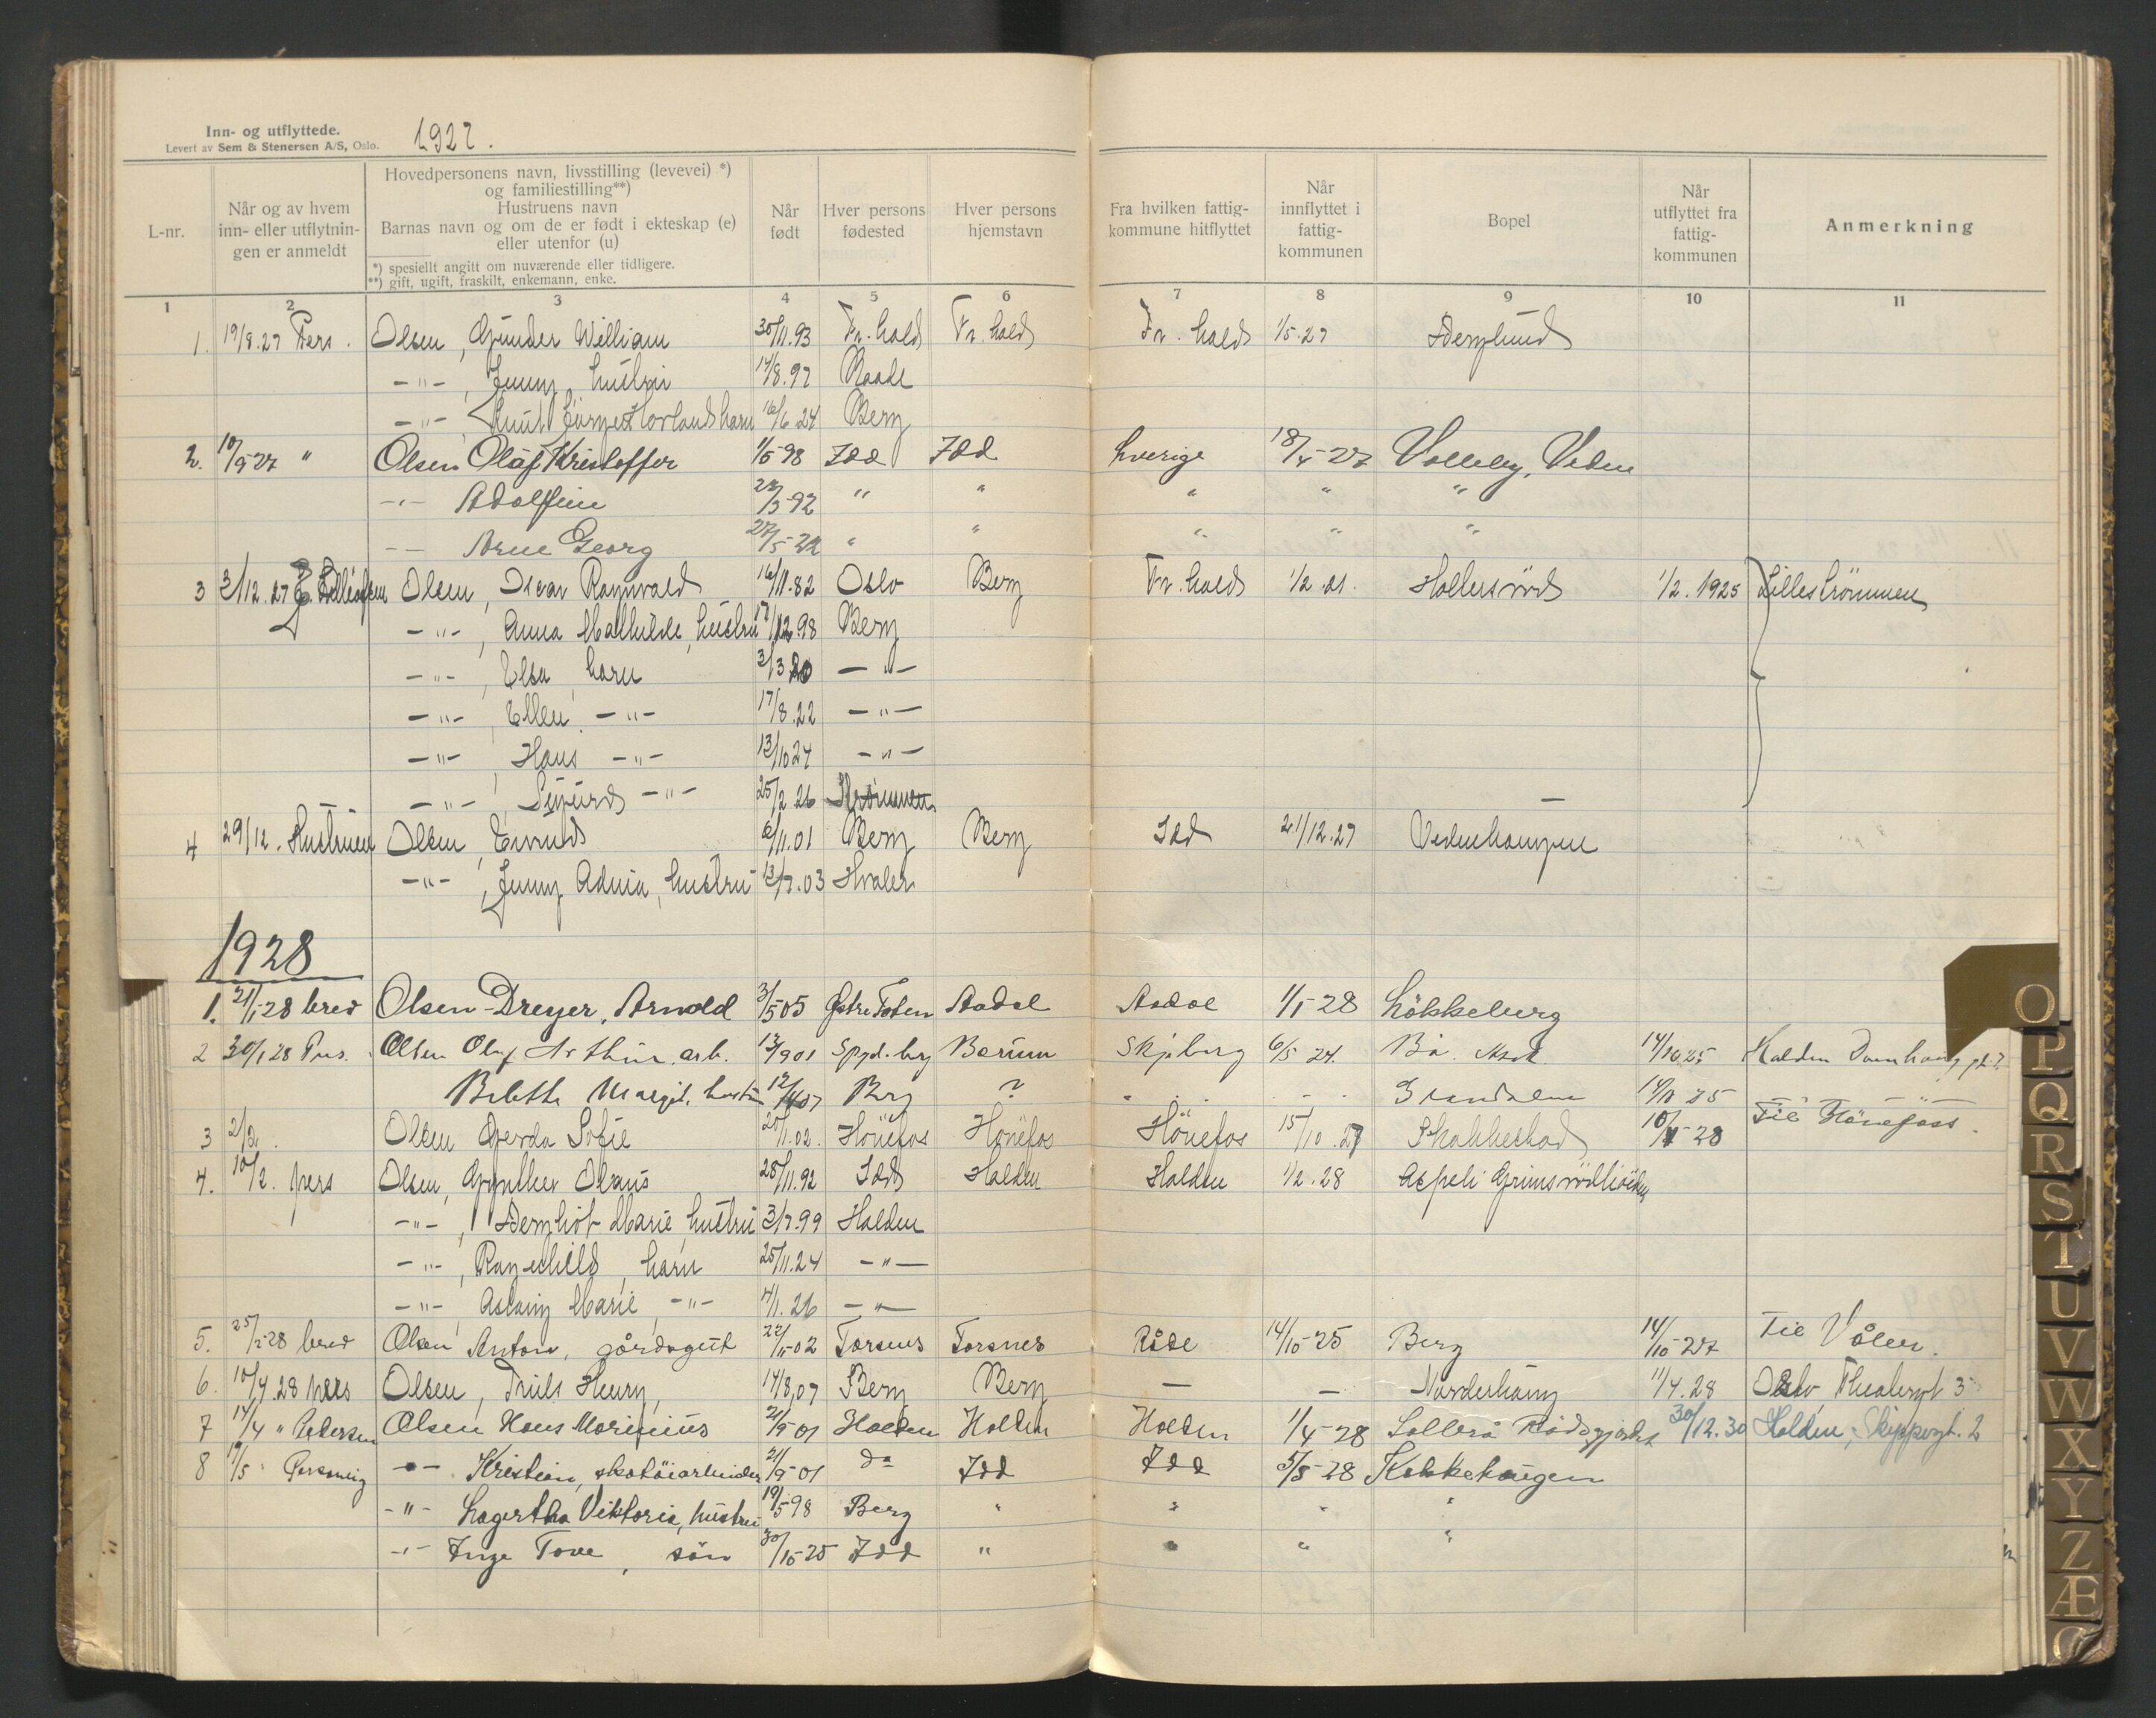 Inn- og utflyttede. 1927.
Levert av Sem & Stenersen A/S, Oslo.
L-nr. Når og av hvem inn- eller utflytnin-gen er anmeldt Hovedpersonens navn, livsstilling (levevei) *) og familiestilling**) Hustruens navn Barnas navn og om de er født i ekteskap (e) eller utenfor (u) *) spesiellt angitt om nuværende eller tidligere. **) gift, ugift, fraskilt, enkemann, enke. Når født Hver persons fødested Hver persons hjemstavn Fra hvilken fattig-kommune hitflyttet Når innflyttet i fattig-kommunen Bopel Når utflyttet fra fattig-kommunen Anmerkning
1 2 3 4 5 6 7 8 9 10 11
1. 19/8.27 Pers. Olsen, Gunder William 30/11.93 Fr.hald Fr.hald Fr.hald 1/5.27 Berglund
-"-, Jenny, hustru 14/8.97 Raade
-"- Knut barn 16/6 24 Berg
2. 10/9 27 " Olsen Olaf Kristoffer 1/6-98 Idd Idd Sverige 18/5-27 Veden
-"- Adolfine 3-92 " " " " "
-- Arne Georg 27/5-22 " " " " "
3 3/12.27 Olsen, Oscar Ragnvald 16/11.82 Oslo Berg Fr.hald 1/2.21. Hollerød 1/2.1925 Lillestrømmen
-"-, Anna Mathilde, hustru 17/12.98 Berg
-"-, Elsa, barn 3/3 20 -"-
-"-, Ellen -"- 17/8.22 -"-
-"-, Hans -"- 13/10 24 -"-
-"-, Sigurd -"- 25/2 26 Strømmen
4 29/12. Hustruen Olsen, Eivind 6/11.01 Berg Berg Idd 21/12.27 Vedenkampen
-"-, Jenny hustru 13/7.03 Hvaler
1928
1. 21/1-28 brev Olsen-Dreyer, Arnold 3/5 05 Østre Toten Aadal Aadal 1/1-28 Løkkeberg
2 30/1 28 Pers. Olsen Olaf Arthur arb. 13/9 01 Berg Skjeberg 6/5 24. Bø. Asak 14/10 25 Halden
Margit, hustru 12/4 07 Berg ? 14/10 25 -"-
3 2/2. Olsen Gerda Sofie 20/11.02. Hönefos Hönefos Hönefos 15/10.27 Skakkestad 10/4-28 Til Hönefoss.
4. 10/2. pers Olsen, Gynther Olaus 28/11.92 Idd Halden Halden 1/2.28 Aspeli
-"-, Marie, hustru 3/7.99 Halden
-"-, Ragnhild, barn 25/11.24 -"-
-"-, Aslaug Marie, -"- 4/1.26 -"-
5. 25/2-28 brev Olsen Anton, gårdsgut 22/11-02 Torsnes Torsnes Råde 14/10-25 Berg 14/10-27 Til Våler.
6. 10/4.28 pers Olsen, Truls Henry, 14/8,07 Berg Berg - - Norderhaug 11/4.28 Oslo, Theatergt 3
7 14/4 " Pedersen Olsen Hans Marinius 21/9-01 Halden Halden Halden 1/4-28 30/12.30 Halden, Skippergt. 2
8 19/5 " Personlig -"- Kristian, skotöiarbeider 21/9-01 do Idd Idd 5/5-28 Kokkehaugen
-"- Lagertha Viktoria, hustru 19/5 98 Berg " " " "
-"- Inge Tove, sön 30/10-25 Idd " " " "
O
P
Q
R
S
T
U
V
W
X
Y
Z
Æ